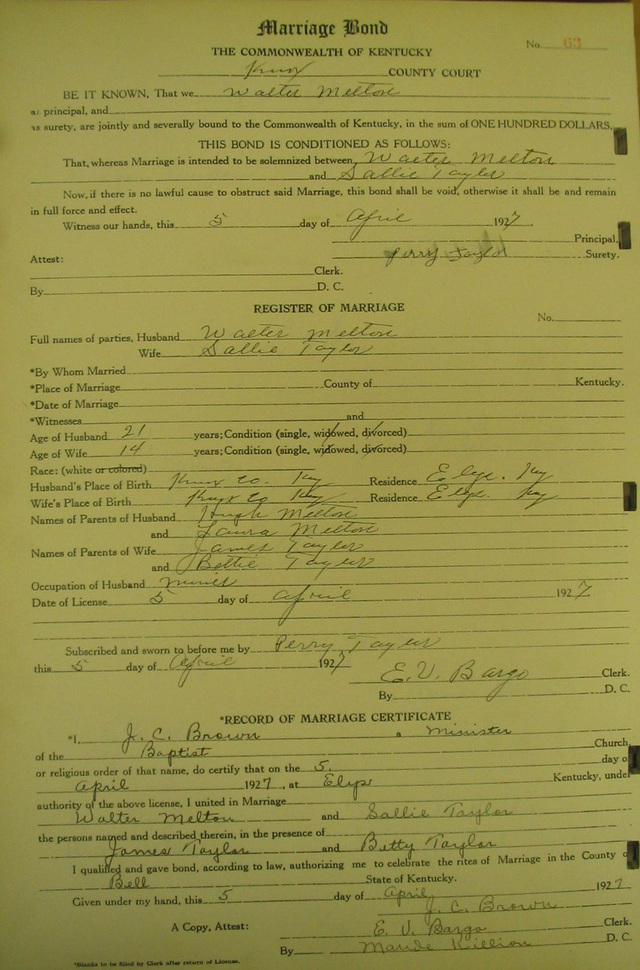 Marriage Bond
THE COMMONWEALTH OF KENTUCKY
No. 63
Knox COUNTY COURT
BE IT KNOWN, That we Walter Melton
as principal, and
as surety, are jointly and severally bound to the Commonwealth of Kentucky, in the sum of ONE HUNDRED DOLLARS.
THIS BOND IS CONDITIONED AS FOLLOWS:
That, whereas Marriage is intended to be solemnized between Walter Melton
and Sallie Taylor
Now, if there is no lawful cause to obstruct said Marriage, this bond shall be void, otherwise it shall be and remain
in full force and effect.
Witness our hands, this 5 day of April 1927
Principal,
Perry Taylor Surety.
Attest:
Clerk.
By D. C.
REGISTER OF MARRIAGE
No.
Full names of parties, Husband Walter Melton
Wife Sallie Taylor
*By Whom Married
*Place of Marriage County of Kentucky.
*Date of Marriage
*Witnesses and
Age of Husband 21 years; Condition (single, widowed, divorced)
Age of Wife 14 years; Condition (single, widowed, divorced)
Race: (white or colored)
Husband's Place of Birth Knox Co. Ky Residence Elys. Ky
Wife's Place of Birth Knox Co Ky Residence Elys. Ky
Names of Parents of Husband Hugh Melton
and Laura Melton
Names of Parents of Wife James Taylor
and Bettie Taylor
Occupation of Husband miner
Date of License 5 day of April 1927
Subscribed and sworn to before me by Perry Taylor
this 5 day of April 1927
E. V. Bargo Clerk.
By D. C.
*RECORD OF MARRIAGE CERTIFICATE
*I, J. C. Brown a Minister
of the Baptist Church
or religious order of that name, do certify that on the 5. day o
April 1927, at Elys Kentucky, under
authority of the above license, I united in Marriage
Walter Melton and Sallie Taylor
the persons named and described therein, in the presence of
James Taylor and Betty Taylor
I qualified and gave bond, according to law, authorizing me to celebrate the rites of Marriage in the County o
Bell State of Kentucky.
Given under my hand, this 5 day of April 1927
J. C. Brown
A Copy, Attest: E. V. Bargo Clerk.
By Maude Killion D. C.
*Blanks to be filled by Clerk after return of License.